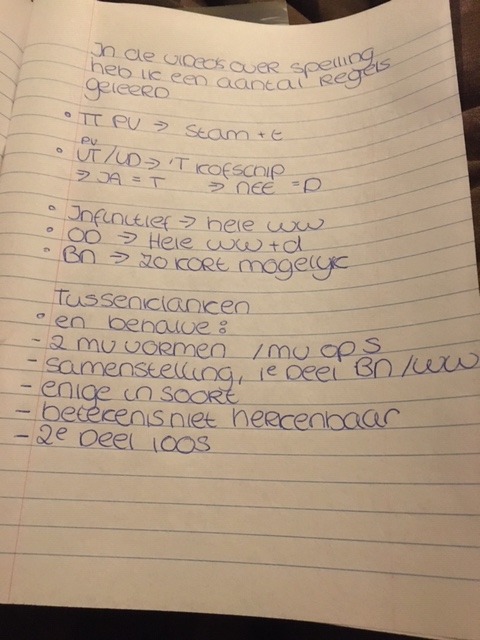 In de video's over spelling
heb ik een aantal Regels
geleerd
• TT PV → Stam + t
PV
• VT/VD → 'T KOFSCHIP
→ JA = T → NEE = D
• Infinitief → hele ww
• OD → Hele ww + d
• BN → zo kort mogelijk
Tussenklanken
• en behalve:
- 2 mv vormen / mv op S
- samenstelling, 1e Deel BN/ww
- enige in soort
- betekenis niet herkenbaar
- 2e Deel loos